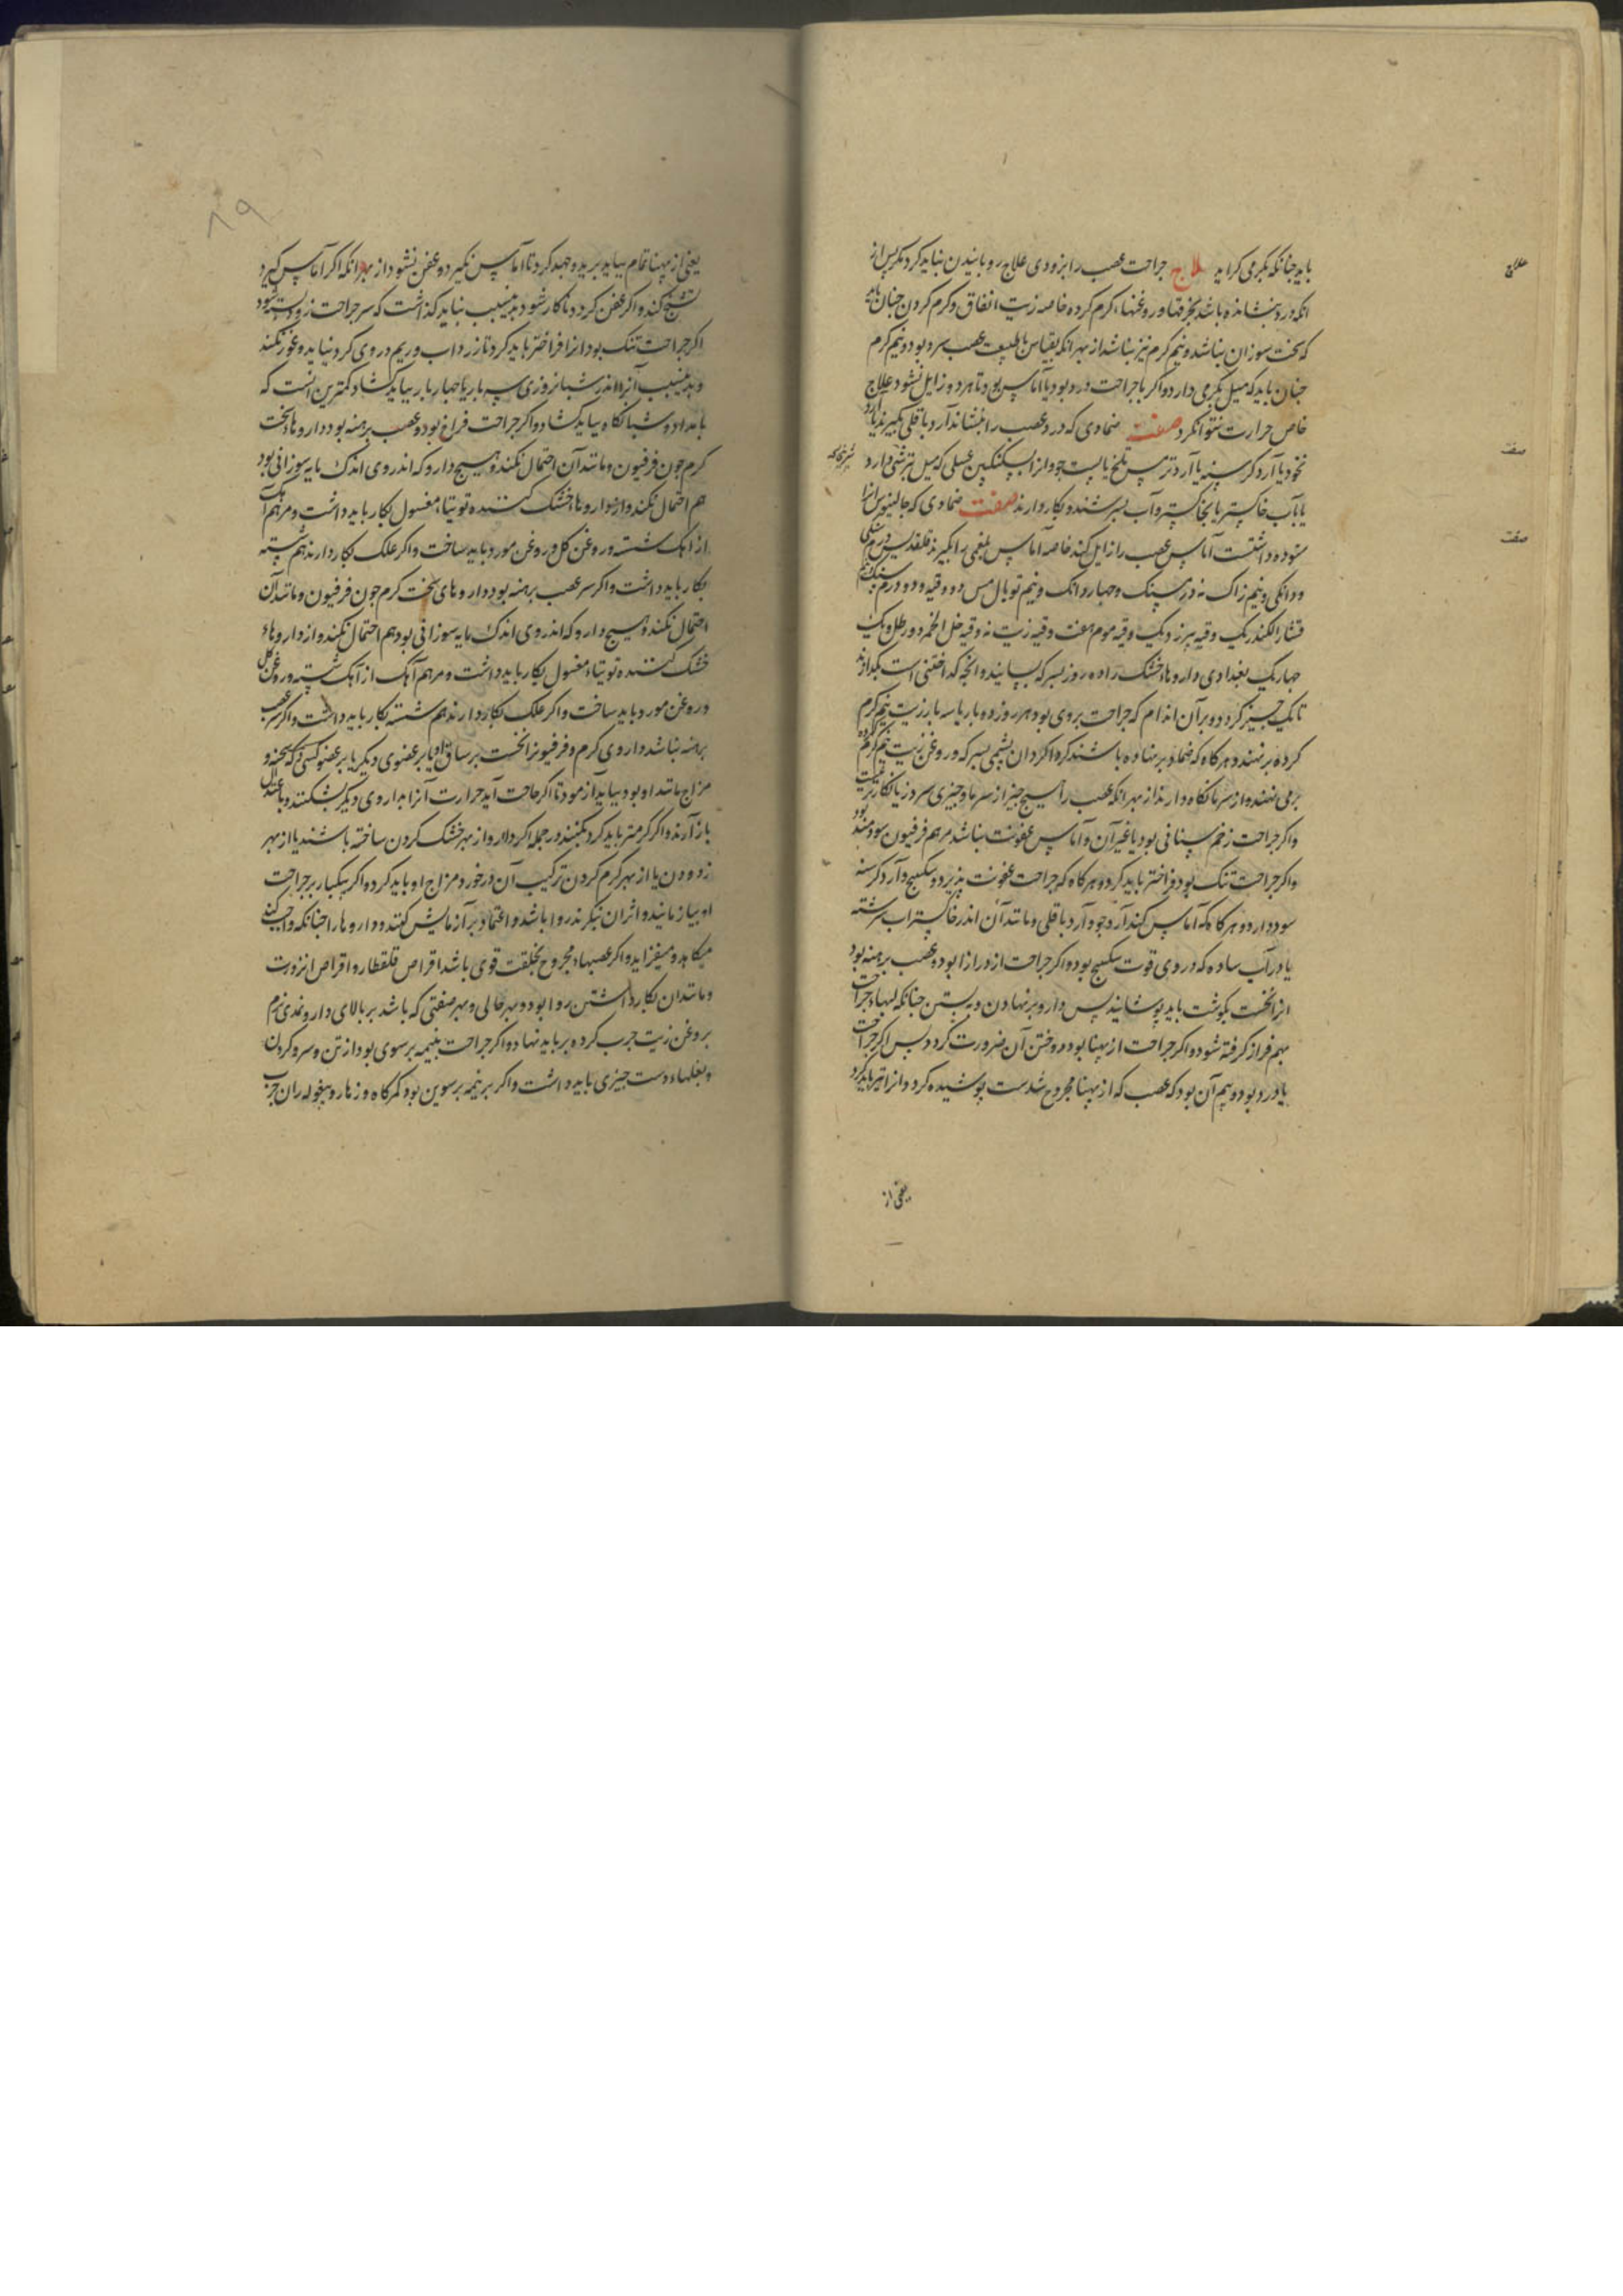 باید جنانکه بکرمی کراید علاج جراحت عصب را بزودی علاج رویانیدن نباید کرد مکر پس از
علاج
انکه درد بنشانده باشد بخرقها و روغنهاء کرم کرده خاصه زیت انفاق و کرم کردن جنان باید
که سخت سوزان نباشد و نیم کرم نیز نباشد از بهر انکه بقیاس با طبیعت عصب سرد بود و نیم کرم
جنان باید که میل بکرمی دارد و اکر با جراحت درد بود یا آماس بود تا هر دو زایل نشود علاج
خاص حرارت نتوان کرد صفت ضمادی که درد عصب را بنشاند آرد باقلی بکیرند یا آرد
نخود یا آرد کرسنه یا آرد ترمس تلخ یا پست جو و از سکنکبین عسلی که میل بترشی دارد
صفت
یا بآب خاکستر یا بخاکستر و آب بسرشند و بکار دارند صفت ضمادی که جالینوس انرا
ستوده داشتست آماس عصب را زایل کند خاصه آماس بلغمی را بکیرند قلقدیس درمسنکی
صفت
و دانکی و نیم زاک نه درمسنک و جهار دانک و نیم توبال مس دو وقیه و دو درمسنک و نیم
قشار الکندر یک وقیه بیرزد یک وقیه موم هفت وقیه زیت نه وقیه خل الخمر دو رطل و یک
جهاریک بغدادی داروهاء خشک را ده روز بسرکه بسایند و انجه کداختنی است بکدازند
تا یک جیز کردد و بر آن اندام که جراحت بروی بود هر روز ده بار یا سه بار زیت نیم کرم
کرده برنهند و هرکاه که ضماد برنهاده باشند کرداکرد ان پشمی بسرکه و روغن زیت نیم کرم کرده
برمی نهند و از سرما نکاه دارند از بهر انکه عصب را هیسج جیز از سرما و جیزی سرد زیانکارتر نیست
واکر جراحت زخم سنانی بود یا غیر آن و آماس عفونت نباشد مرهم فرفیون سودمند بود
واکر جراحت تنک بود فراختر باید کرد و هرکاه که جراحت عفونت پذیرد و سکبینج و آرد کرسنه
سود دارد و هرکاه که آماس کند آرد جو و آرد باقلی و مانند آن اندر خاکستراب سرشته
یا در آب ساده که در وی قوت سکبینج بود و اکر جراحت از درازا بود و عصب برهنه بود
انرا نخست بکوشت باید پوشانید پس دارو برنهادن و به بستن جنانکه لبهاء جراحت
بهم فراز کرفته شود و اکر جراحت از پهنا بود دوختن آن ضرورت کردد پس اکر جراحت
با درد بود و بیم آن بود که عصب که از پهنا مجروح شدست پوشیده کردد و انرا تیر باید کرد
یعنی از
۸۹
یعنی از پهنا تمام بباید برید و جهد کرد تا آماس نکیرد و عفن نشود از بهر انکه اکر آماس کیرد
تشنج کند و اکر عفن کردد ناکار شود بدین سبب نباید کذاشت که سر جراحت زود بسته شود
اکر جراحت تنک بود از را فراختر باید کرد تا زرداب و ریم در وی کرد نیاید و غور نکند
و بدین سبب آنرا اندر شبانروزی سه بار یا جهار بار بباید کشاد و کمترین آنست که
بامداد و شبانکاه بباید کشاد و اکر جراحت فراخ بود و عصب برهنه بود داروهاء سخت
کرم جون فرفیون و مانند آن احتمال نکند و هیسج دارو که اندر وی اندک مایه سوزانی بود
هم احتمال نکند و از داروهاء خشک کننده توتیاء مغسول بکار باید داشت و مرهم آهک
از آهک شسته و روغن کل و روغن مورد باید ساخت و اکر علک بکار دارند هم شسته
بکار باید داشت و اکر سر عصب برهنه بود داروهای سخت کرم جون فرفیون و مانند آن
احتمال نکند و هیسج دارو که اندر وی اندک مایه سوزانی بود هم احتمال نکند و از داروهاء
خشک کننده توتیاء مغسول بکار باید داشت و مرهم آهک از آهک شسته و روغن کل
و روغن مورد باید ساخت و اکر علک بکار دارند هم شسته بکار باید داشت و اکر سر عصب
برهنه نباشد داروی کرم و فرفیون را نخست بر ساق او یا بر عضوی دیکر یا بر عضو کسی دیکر که سحنه و
مزاج مانند او بود بباید آزمود تا اکر حاجت آید حرارت آنرا بداروی دیکر بشکنند و باعتدال
باز آرند و اکر کرمتر باید کرد بکنند در جمله اکر دارو از بهر خشک کردن ساخته باشند یا از بهر
زدودن یا از بهر کرم کردن ترکیب آن درخورد مزاج او باید کرد و اکر یکبار بر جراحت
او بیازمایند و اثر ان بنکرند روا باشد و اعتماد بر آزمایش کنند و داروها را جنانکه واجب کند
میکاهد و میفزاید و اکر عصبهاء مجروح بخلقت قوی باشد اقراص قلقطار و اقراص انزروت
و مانند ان بکار داشتن روا بود و بهر حالی و بهر صفتی که باشد بر بالای دارو نمدی نرم
بروغن زیت جرب کرده بر باید نهاد و اکر جراحت بنیمه برسوی بود از تن و سر و کردن
و بغلهاء دست جیزی باید داشت و اکر بر نیمه برسوین بود کمرکاه و زهار و بیغوله ران جرب